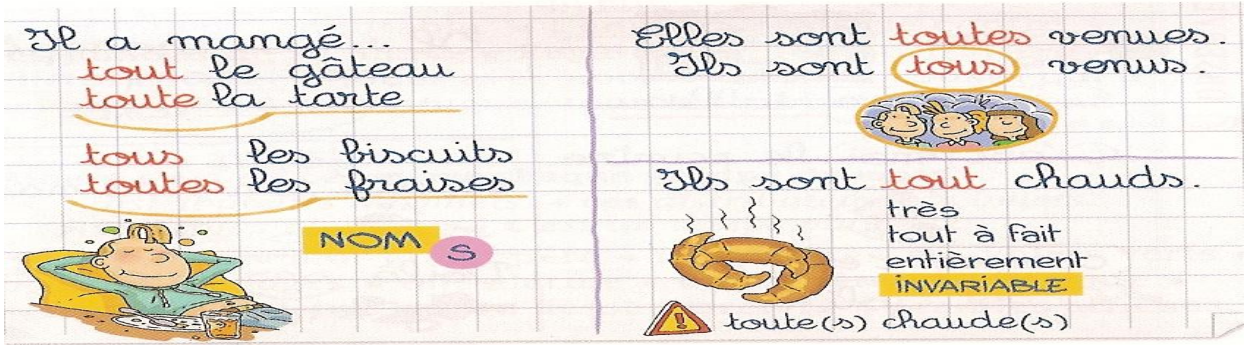 Il a mangé...
tout le gâteau
toute la tarte
tous les biscuits
toutes les fraises
NOM s
Elles sont toutes venues.
Ils sont tous venus.
Ils sont tout chauds.
très
tout à fait
entièrement
INVARIABLE
! toute(s) chaude(s)